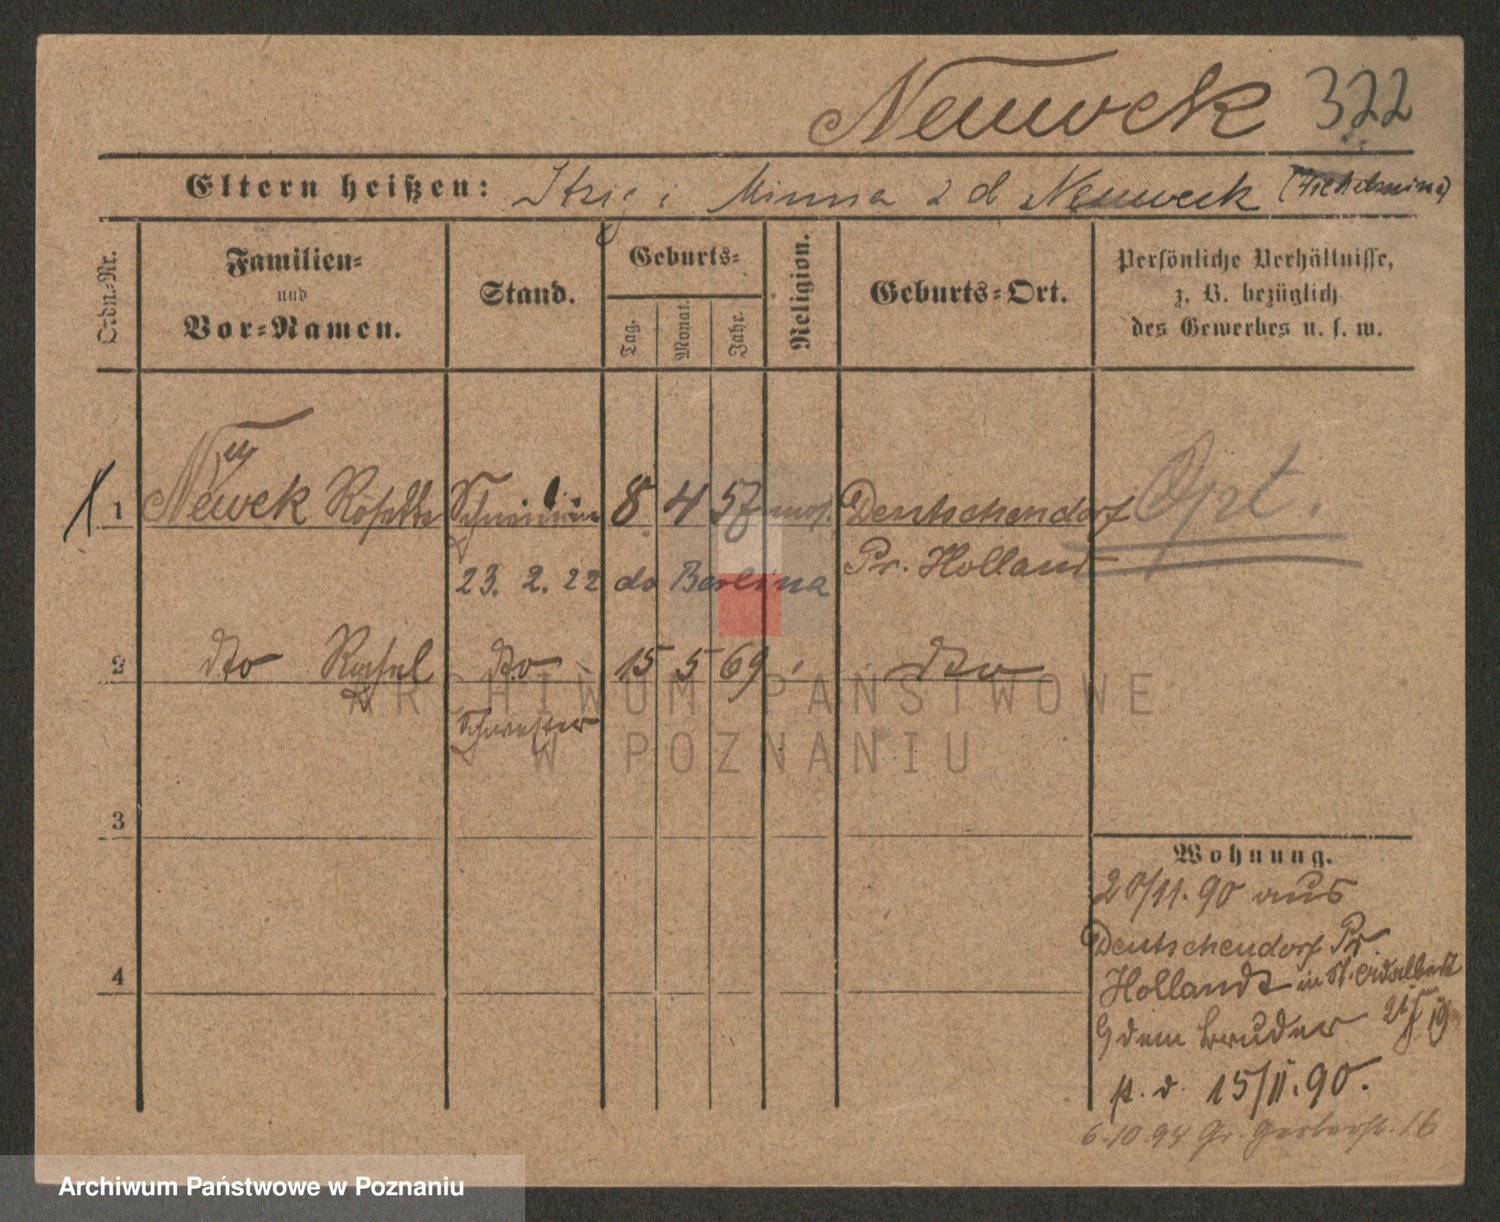 Neuweck 322
Eltern heißen: Itzig i Minna z d Neuweck (Wilhelmina)
Ordn.-Nr.
Familien-
und
Vor-Namen.
Stand.
Geburts-
Tag.
Monat.
Jahr.
Religion.
Geburts-Ort.
Persönliche Verhältnisse,
z. B. bezüglich
des Gewerbes u. s. w.
1 Neuweck Rosette 8 4 57 mos. Deutschendorf Opt.
Pr. Holland
23. 2. 22 do Berlina
2 dto Rachel dto 15 5 69 dto
Schwester
3
4
Wohnung.
20/11. 90 aus
Deutschendorf Pr.
Hollandt in St. Adalbert
dem Bruder
p. d. 15/11. 90.
6.10.94 Gr. Gerberstr. 16
ARCHIWUM PAŃSTWOWE
W POZNANIU
Archiwum Państwowe w Poznaniu